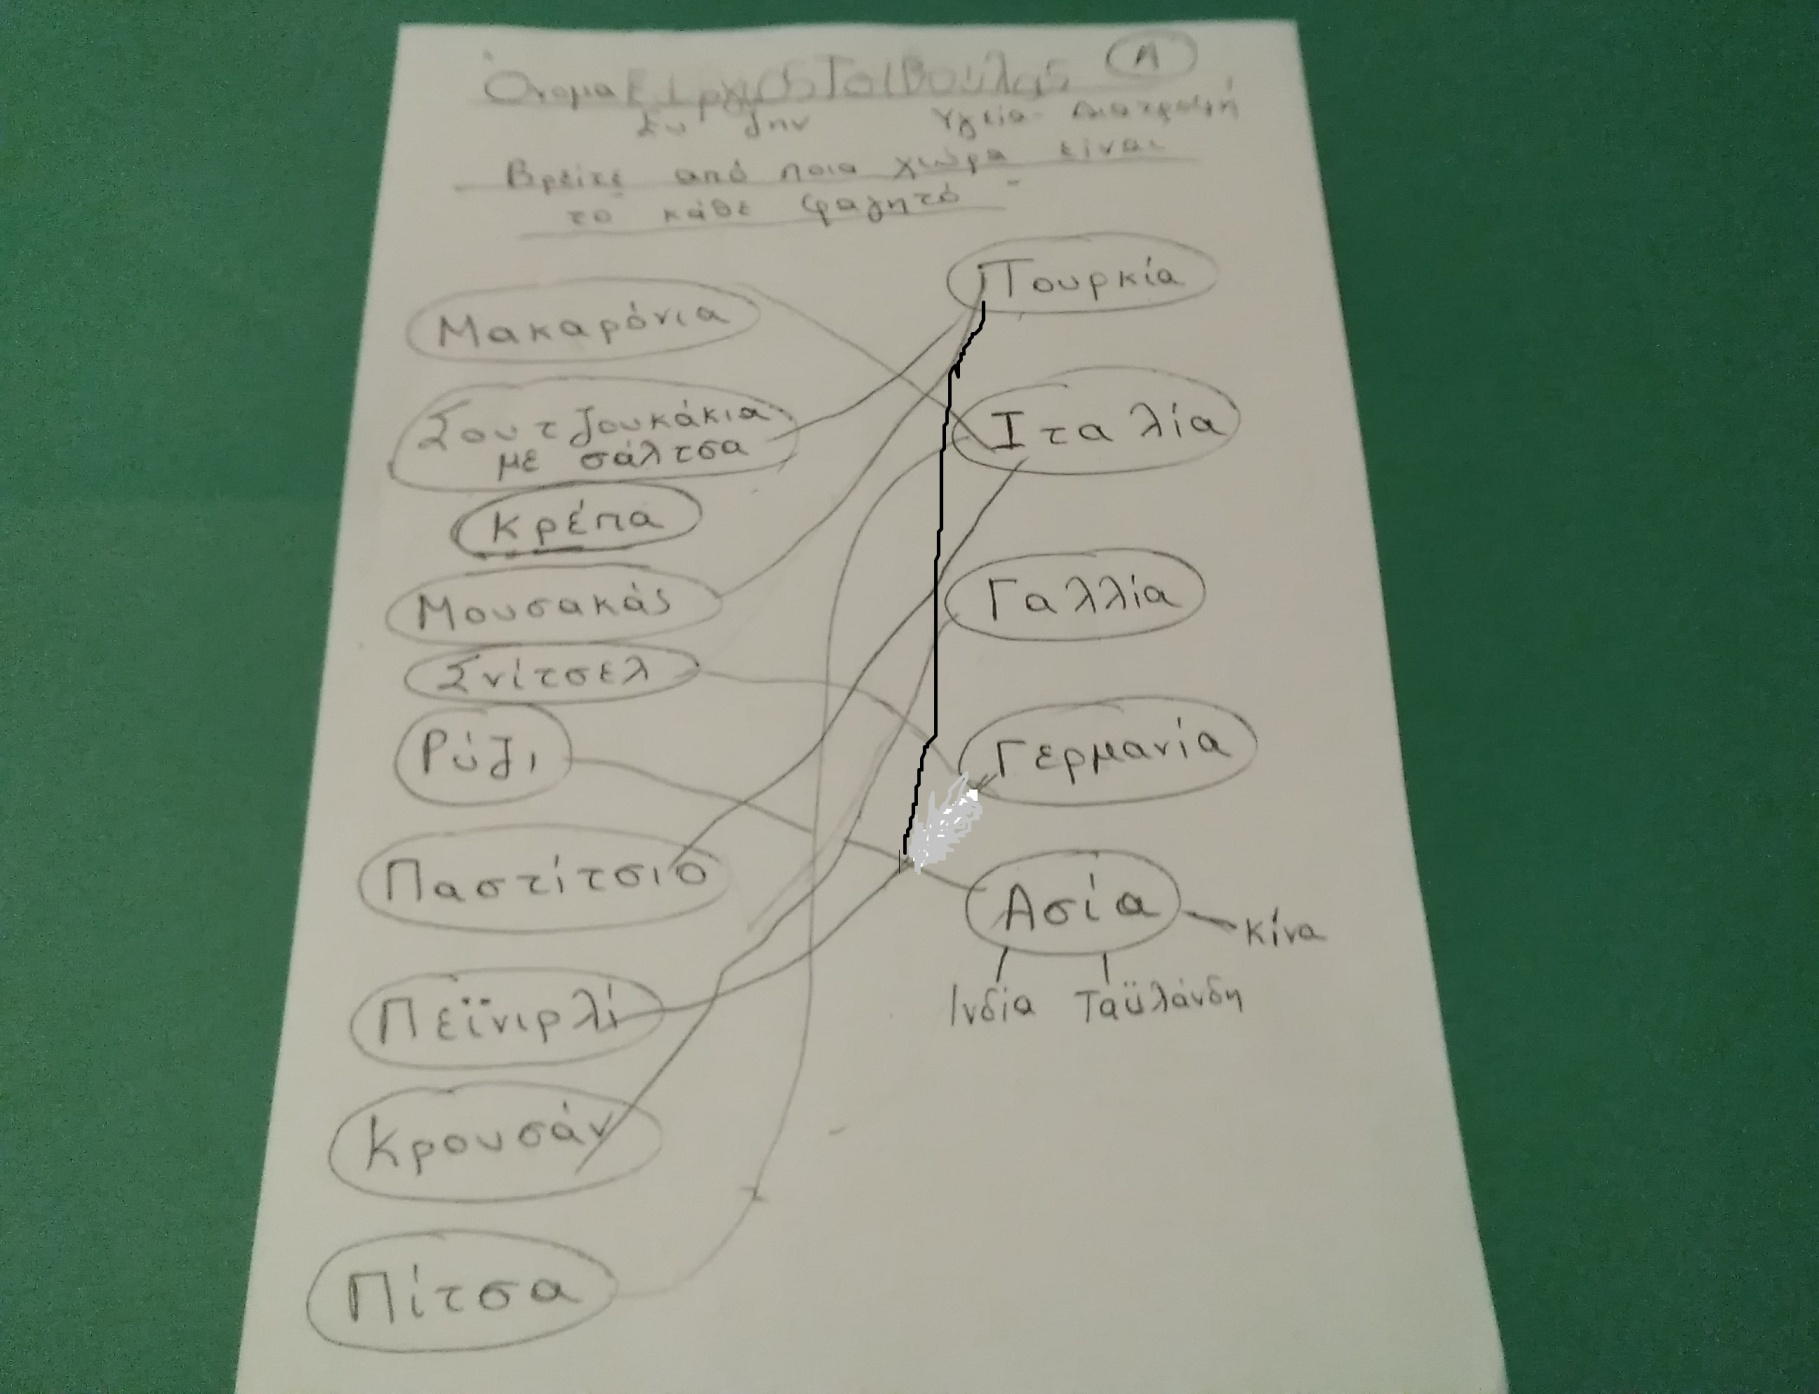 Όνομα
Υγεία - Διατροφή
Βρείτε από ποια χώρα είναι
το κάθε φαγητό
Μακαρόνια
Σουτζουκάκια
με σάλτσα
Κρέπα
Μουσακάς
Σνίτσελ
Ρύζι
Παστίτσιο
Πεϊνιρλί
Κρουσάν
Πίτσα
Τουρκία
Ιταλία
Γαλλία
Γερμανία
Ασία
Κίνα
Ινδία
Ταϋλάνδη